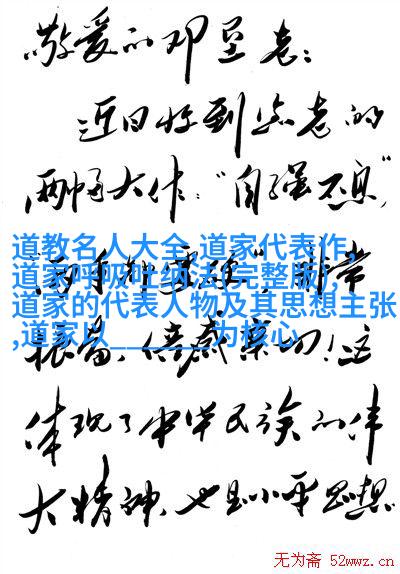 敬爱的邓垦老：
近日收到您老的
两幅大作："自强不息"
道教名人大全,道家代表作,
道家呼吸吐纳法(完整版),
道家的代表人物及其思想主张
,道家以_______为核心
振奋、倍感亲切!这
体现了中华民族的伟
大精神,也是小平思想
无为斋 52wwz.cn